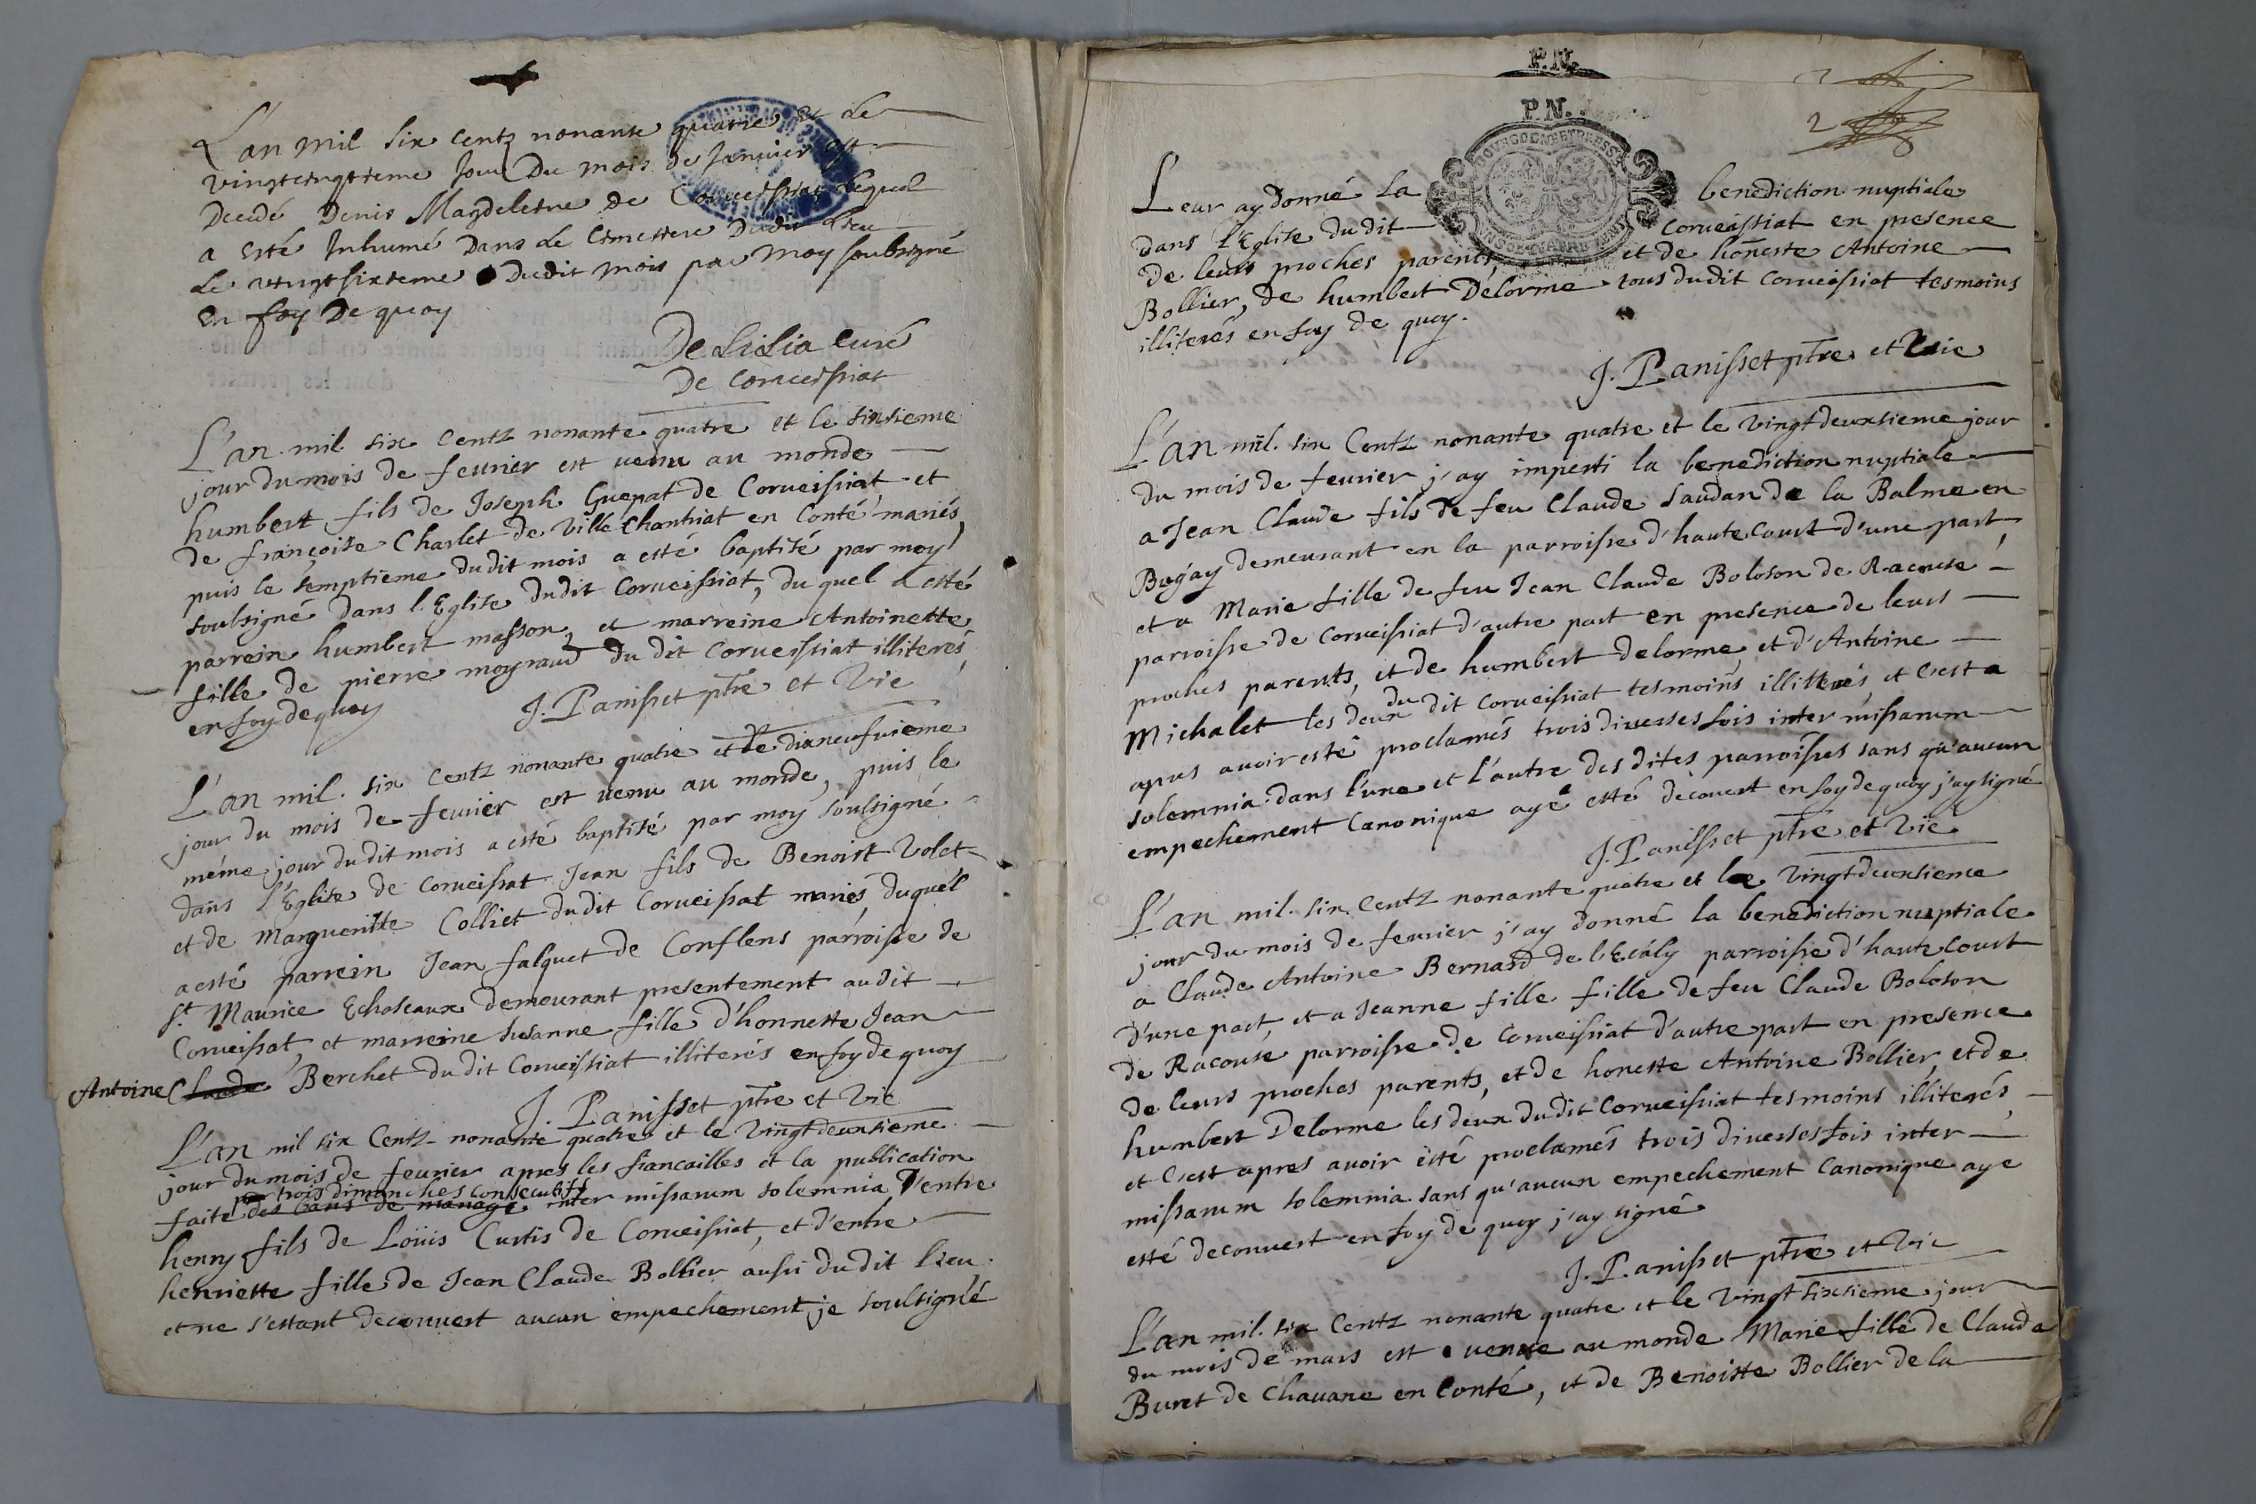 L'an mil six centz nonante quatre et le
vingtcinqtieme jour Du mois de Janvier est
Decedé Denis Magdeleine De Corveissiat lequel
a esté Inhumé Dans le Cimettiere Dudit Lieu
Le vingtsixieme Dudit mois par moy soubsigné
En foy De quoy
De Lilia curé
De Corveissiat
L'an mil six Centz nonante quatre et le sixsieme
jour du mois de fevrier est venu au monde
humbert fils de Joseph Guepat de Corveissiat et
de françoise Charlet de Ville Chantriat en Conté mariés,
puis le semptieme dudit mois a esté baptisé par moy
soubsigné dans l'Eglise dudit Corveissiat, du quel a esté
parrein humbert masson, et marreine Antoinette
fille de pierre moyraud du dit Corveissiat illiterés,
en foy de quoy
J. Panisset ptre et Vic
L'an mil. six Centz nonante quatre et le dixneufvieme
jour du mois de fevrier est venu au monde, puis le
méme jour dudit mois a esté baptisé par moy soubsigné
dans l'Eglise de Corveissiat Jean fils de Benoist Volet
et de Marguerithe Colliet dudit Corveissiat mariés, duquel
a esté parrein Jean falquet de Conflens parroisse de
St. Maurice Echaseaux demeurant presentement audit
Corveissiat, et marreine Susanne fille d'honneste Jean
Antoine Claude Berchet dudit Corveissiat illiterés en foy de quoy
J. Panisset ptre et Vic
L'an mil six Centz nonante quatre et le Vingtdeuxsieme
jour du mois de fevrier apres les fiancailles et la publication
par trois dimanches consecutifs
faite des bans de mariage inter missarum solemnia D'entre
henry fils de Loüis Curtis de Corveissiat, et d'entre
henriette fille de Jean Claude Bollier aussi du dit lieu
et ne s'estant decouvert aucun empechement, je soubsigné
P.N.
2
P.N.
2
Leur ay donné la benediction nuptiale
dans l'Eglise du dit Corveissiat en presence
de leurs proches parents, et de honneste Antoine
Bollier, de humbert Delorme tous dudit Corveissiat tesmoins
illiterés en foy de quoy.
J. Panisset ptre et Vic
L'an mil. six Centz nonante quatre et le vingtdeuxsieme jour
du mois de fevrier j'ay imperti la benediction nuptiale
a Jean Claude fils de feu Claude Saudan de la Balme en
Bugay demeurant en la parroisse d'hautecourt d'une part,
et a Marie fille de feu Jean Claude Boloson de Racouse
parroisse de Corveissiat d'autre part en presence de leurs
proches parents, et de humbert delorme, et d'Antoine
Michalet les deux du dit Corveissiat tesmoins illiterés, et c'est a
apres avoir esté proclamés trois diverses fois inter missarum
solemnia dans l'une et l'autre des dites parroisses sans qu'aucun
empechement Canonique aye esté decouvert en foy de quoy j'ay signé
J. Panisset ptre et Vic
L'an mil. six Centz nonante quatre et le Vingtdeuxsieme
jour du mois de fevrier j'ay donné la benediction nuptiale
a Claude Antoine Bernard de parroisse d'haute court
d'une part, et a Jeanne fille fille de feu Claude Boloson
de Racouse parroisse de Corveissiat d'autre part en presence
de leurs proches parents, et de honeste Antoine Bollier, et de
humbert Delorme les deux dudit Corveissiat tesmoins illiterés,
et c'est apres avoir esté proclamés trois diverses fois inter
missarum solemnia sans qu'aucun empechement Canonique aye
esté decouvert en foy de quoy j'ay signé
J. Panisset ptre et Vic
L'an mil. six Centz nonante quatre et le Vingt sixsieme jour
du mois de mars est venue au monde Marie fille de Claude
Buret de Chavane en Conté, et de Benoiste Bollier de la